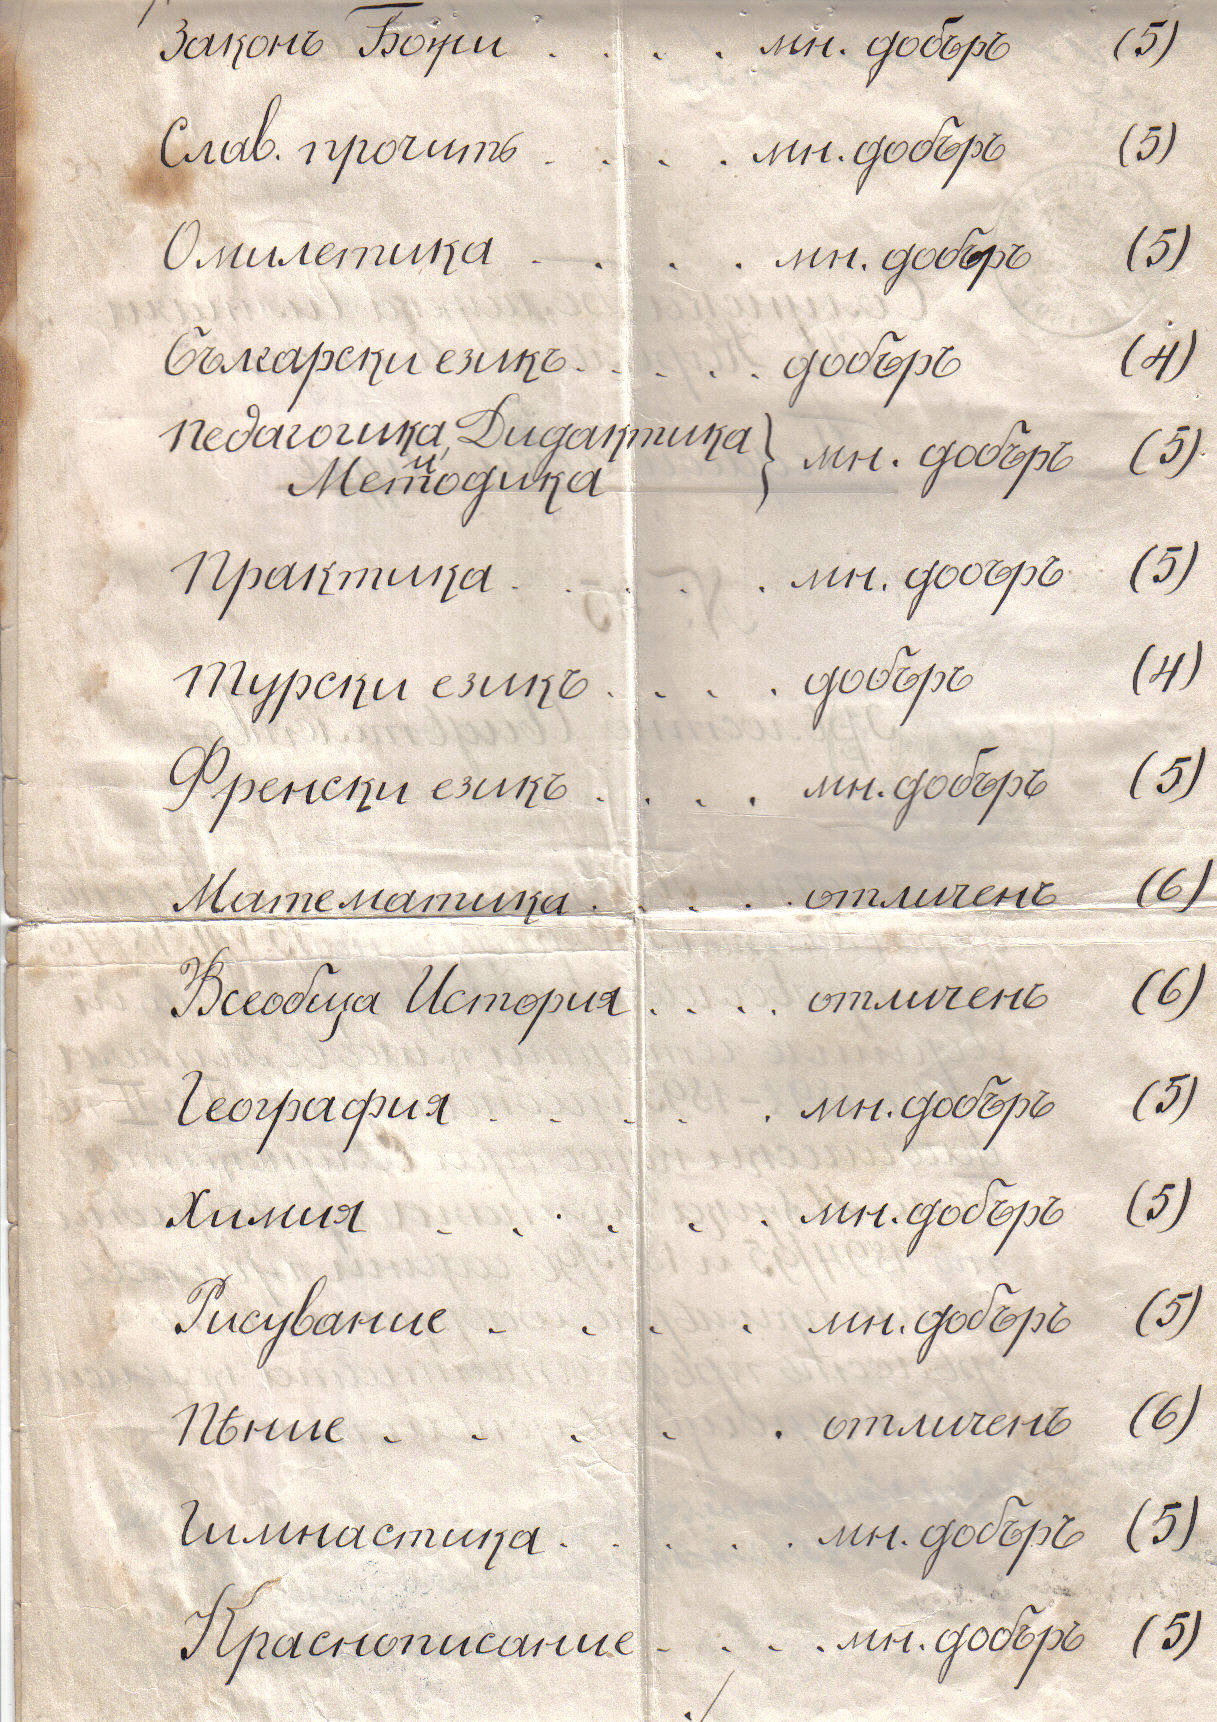 Законъ Божи . . . . мн. добъръ (5)
Слав. прочитъ . . . . мн. добъръ (5)
Омилетика . . . . мн. добъръ (5)
Български езикъ . . . . . добъръ (4)
Педагогика, Дидактика } мн. добъръ (5)
и Методика
Практика . . . . . мн. добъръ (5)
Турски езикъ . . . . добъръ (4)
Френски езикъ . . . . мн. добъръ (5)
Математика . . . . . отличенъ (6)
Всеобща История . . . . отличенъ (6)
География . . . . . мн. добъръ (5)
Химия . . . . . мн. добъръ (5)
Рисувание . . . . мн. добъръ (5)
Пѣние . . . . . отличенъ (6)
Гимнастика . . . . . мн. добъръ (5)
Краснописание . . . . мн. добъръ (5)